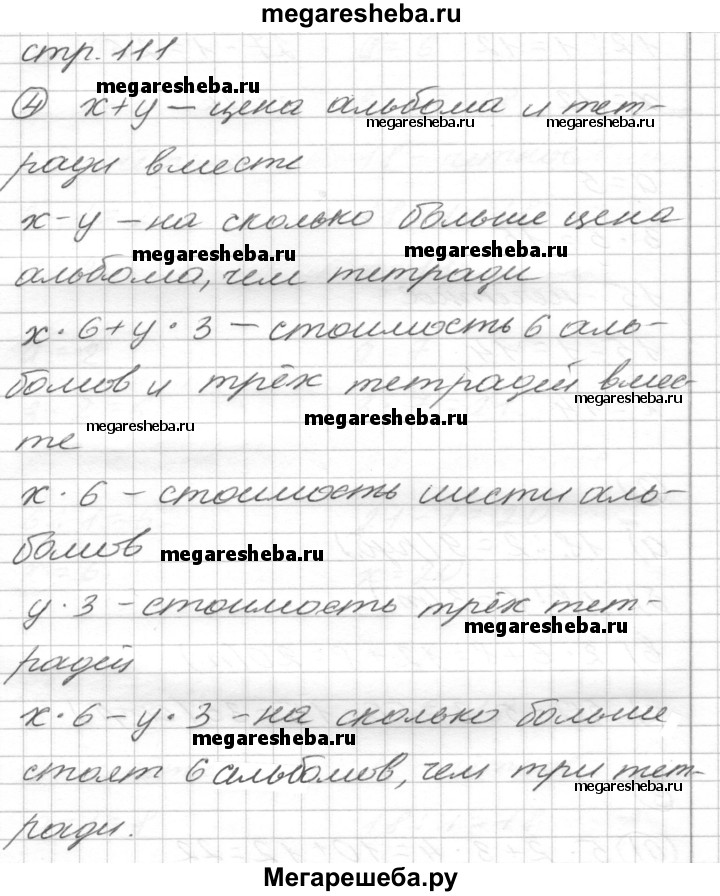 megaresheba.ru
стр. 111
megaresheba.ru
④ x+y — цена альбома и тет-
megaresheba.ru megaresheba.ru
ради вместе
x-y — на сколько больше цена
megaresheba.ru megaresheba.ru
альбома, чем тетради
x·6+y·3 — стоимость 6 аль-
бомов и трёх тетрадей вмес-
megaresheba.ru
megaresheba.ru megaresheba.ru
те
x·6 — стоимость шести аль-
бомов megaresheba.ru
y·3 - стоимость трёх тет-
megaresheba.ru
радей
x·6-y·3 - на сколько больше
megaresheba.ru
стоят 6 альбомов, чем три тет-
megaresheba.ru
ради.
Мегарешеба.ру